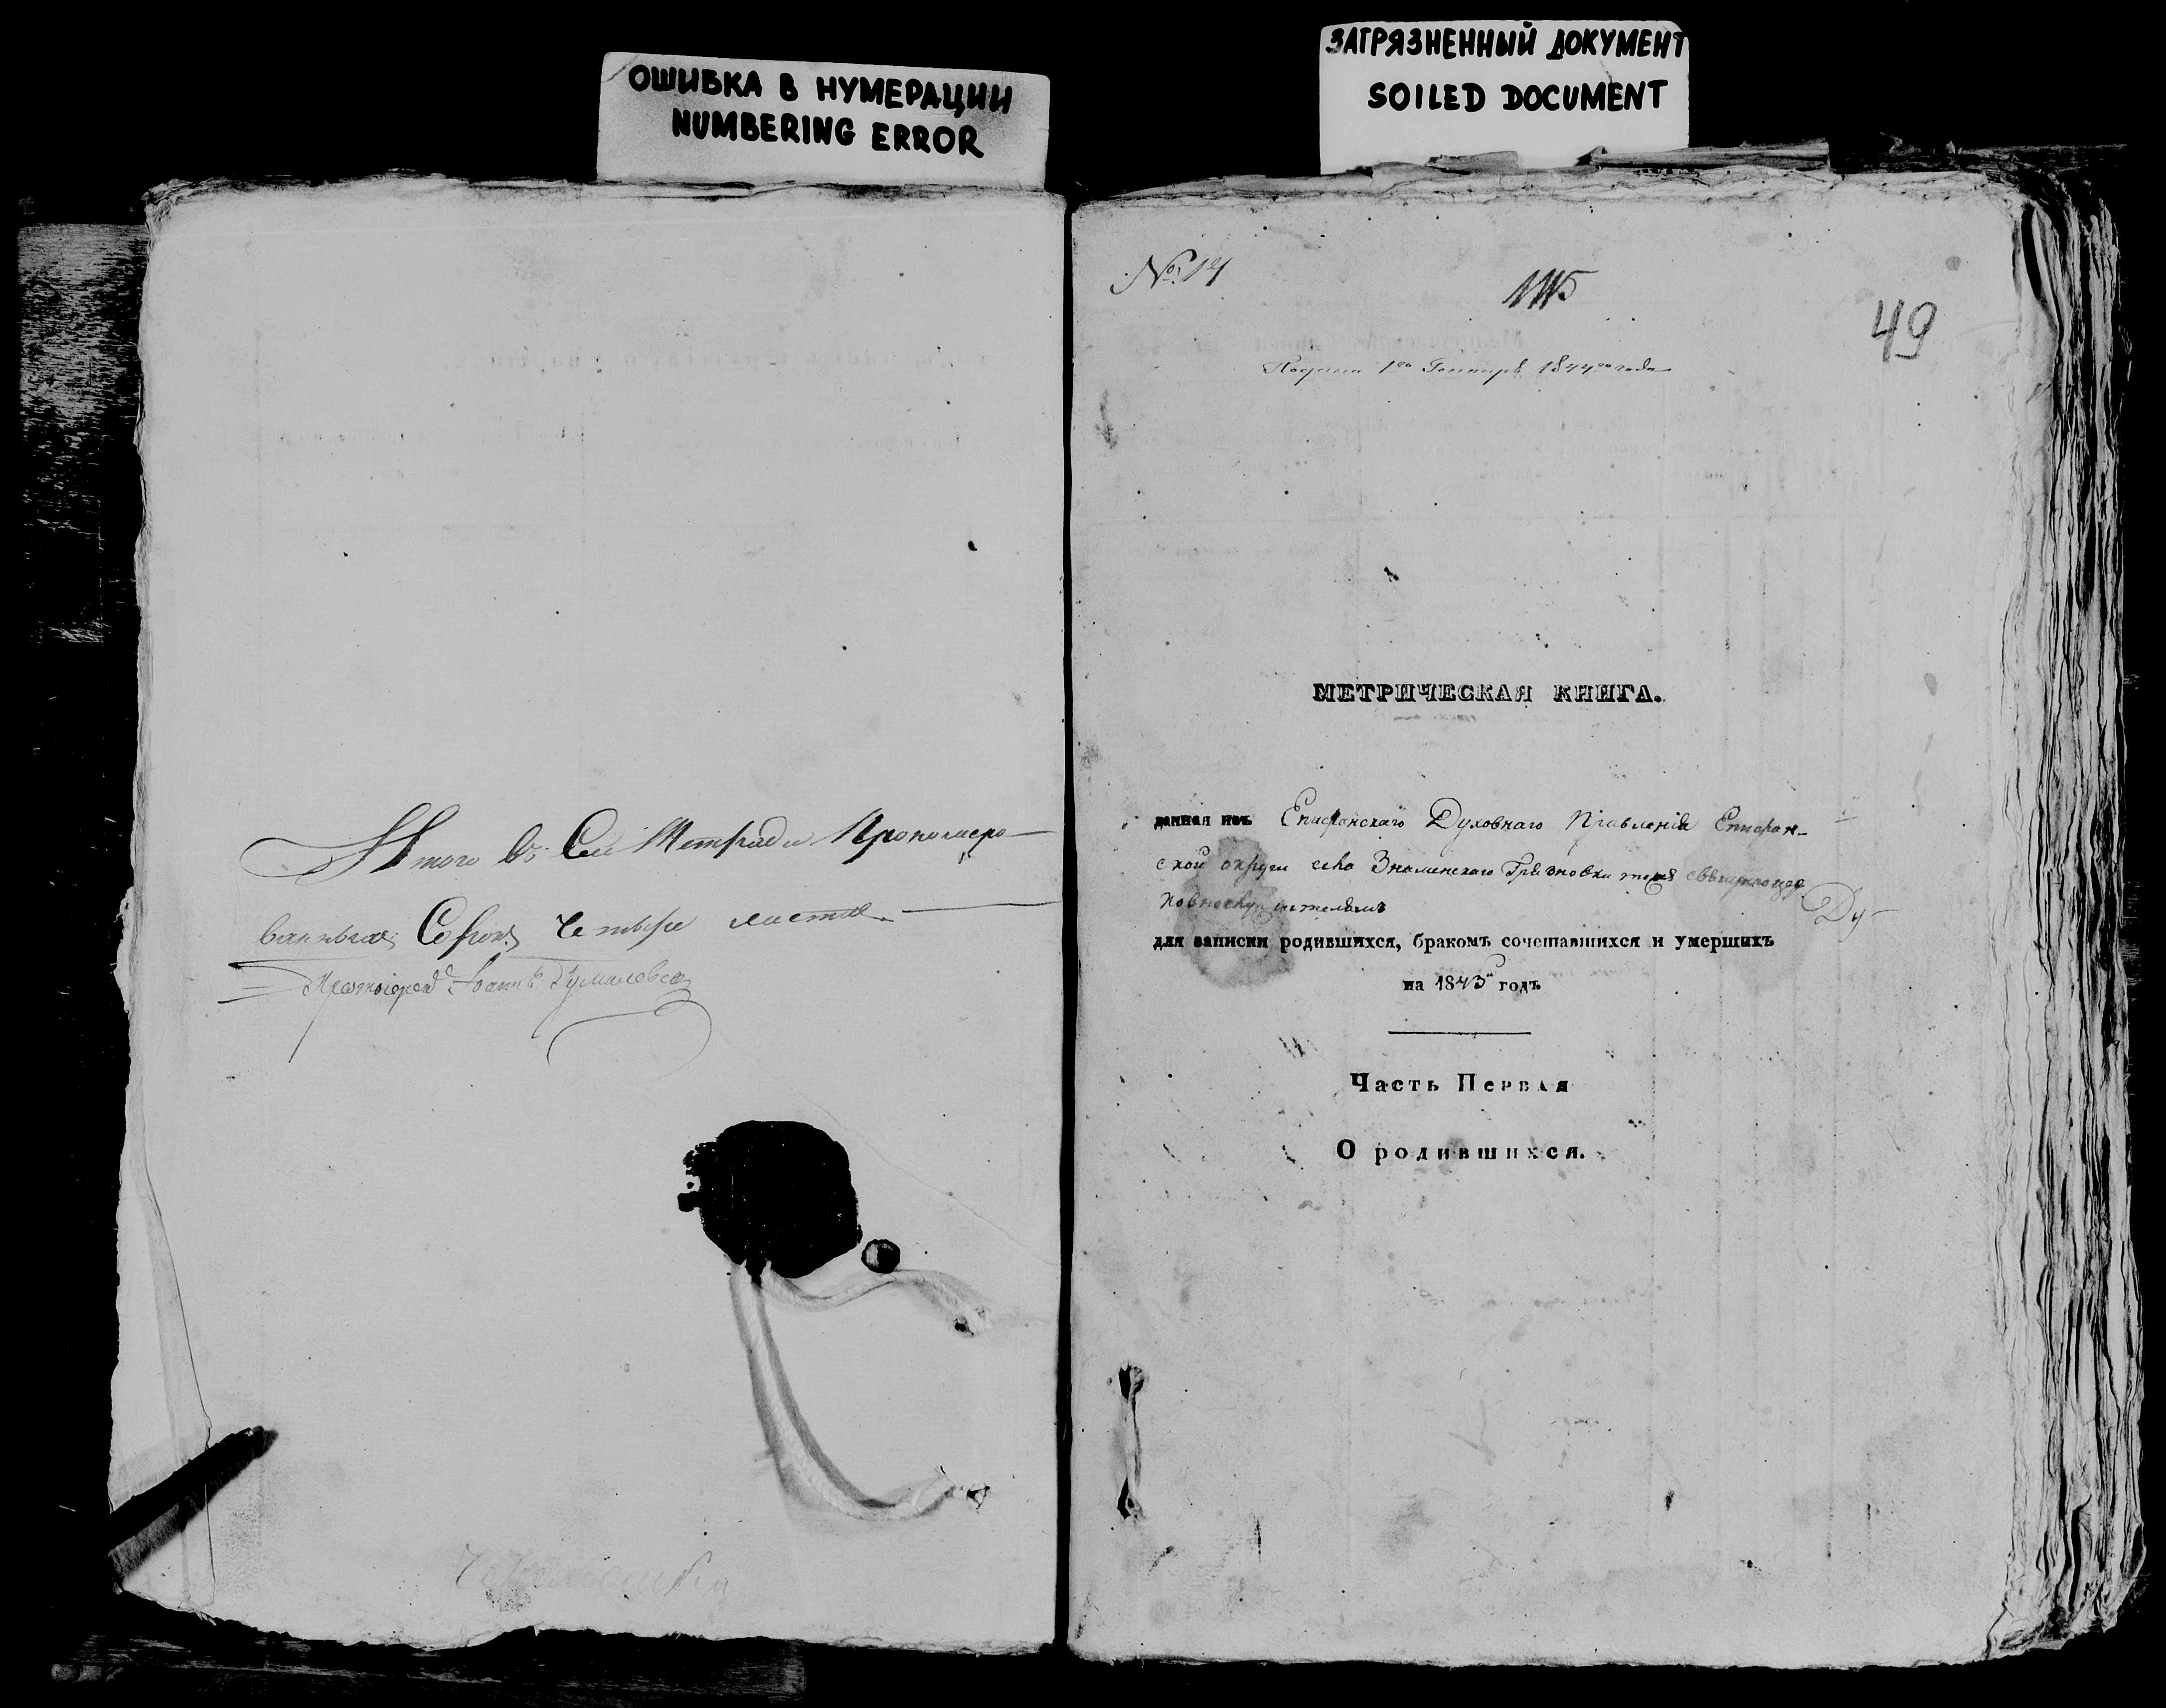 ОШИБКА В НУМЕРАЦИИ
NUMBERING ERROR
ЗАГРЯЗНЕННЫЙ ДОКУМЕНТ
SOILED DOCUMENT
Итого въ Сей Тетради Прономеро-
ванныхъ Сорокъ Четыре листа
Протоіерей Іоаннъ
№ 14
49
Подана 1го Генваря 1844го года
МЕТРИЧЕСКАЯ КНИГА.
данная изъ Епифанскаго Духовнаго Правленія Епифан-
ской округи села Знаменскаго Грязновки тожъ священно
Ду-
для записки родившихся, бракомъ сочетавшихся и умершихъ
на 1843й годъ
Часть Первая
О родившихся.